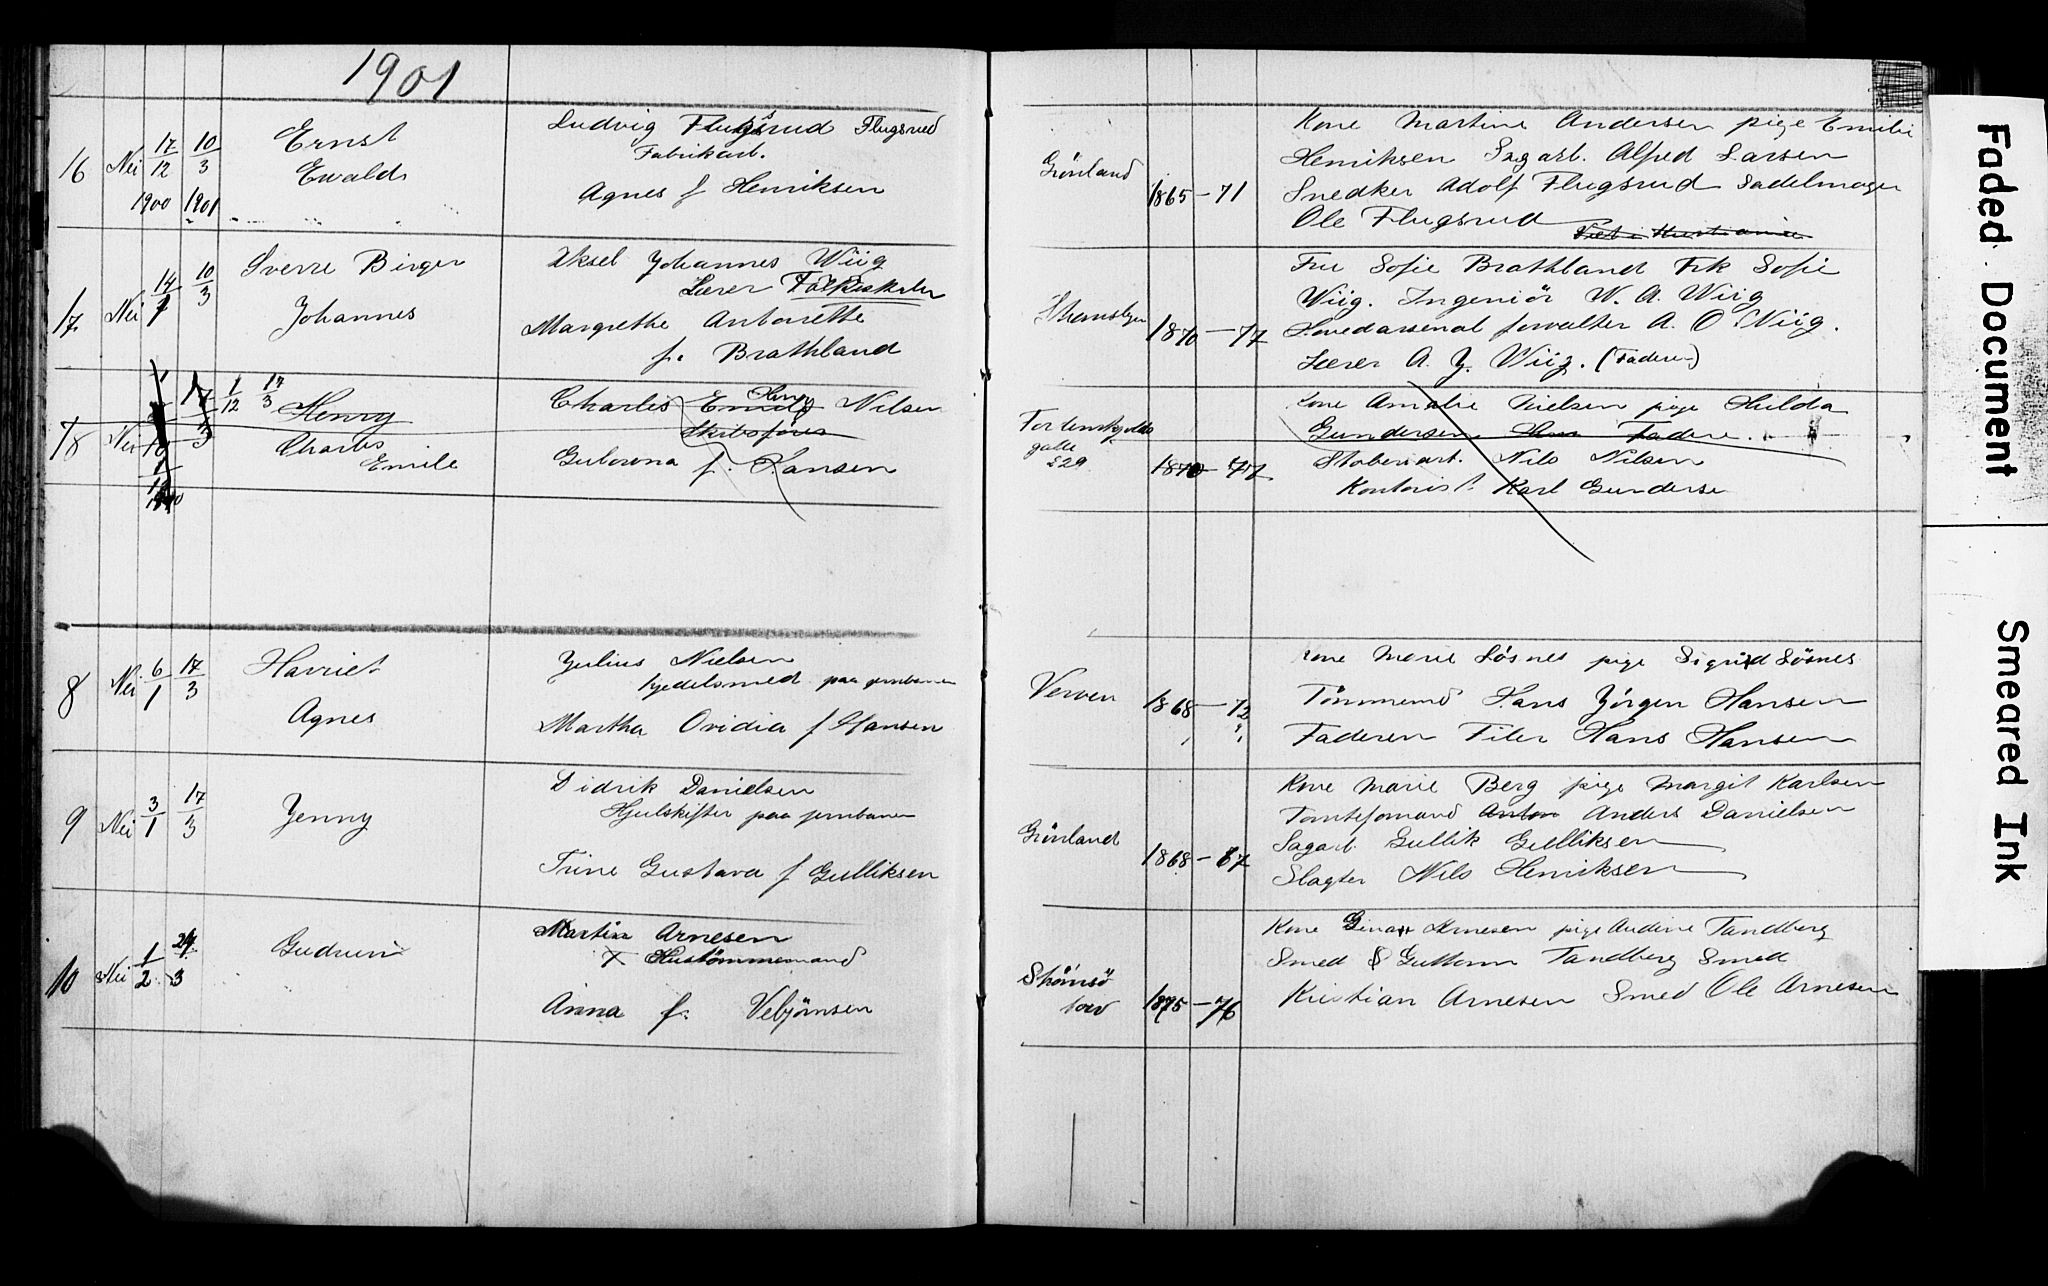 1901
16 Nei 17/12 1900 10/3 1901
Ernst
Ewald
Ludvig Flugsrud Flugsrud
Fabrikarb.
Agnes f Henriksen
Grönland
1865 - 71
Kone Martine Andersen pige Emilie
Henriksen Sagarb. Alfred Larsen
Snedker Adolf Flugsrud Sadelmager
Ole Flugsrud
17 Nei 14/1 10/3
Sverre Birger
Johannes
Aksel Johannes Wiig
Lærer Folkeskolen
Margrethe Antoinette
f. Brathland
1870 - 77
Fru Sofie Brathland Frk Sofie
Wiig. Ingeniör W. A. Wiig
Hovedarsenal forvalter A. O. Wiig.
Lærer A. J. Wiig. (Faderen)
18 Nei 1/12 17/3
Henry
Charles
Emile
Charles Emile Henry Nilsen
Skibsförer
f. Hansen
Tordenskjolds
gade
1870 - 77
Kone Amalie Nielsen pige Hulda
Gundersen Fadere
Nils Nilsen
Kontorist Karl Gunderse
8 Nei 6/1 17/3
Harriet
Agnes
Julius Nielsen
kjedelsmed paa jernbanen
Martha Ovidia f Hansen
Verven
1868 - 72
Kone Marie Lösnes pige Sigrid Lösnes
Tömmermd Hans Jörgen Hansen
Faderen Filer Hans Hansen
9 Nei 3/1 17/3
Jenny
Didrik Danielsen
Hjulskifter paa jernbanen
Trine Gustava f Gulliksen
Grönland
1868 - 67
Kone Marie Berg pige Margit Karlsen
Tomteformand Anton Anders Danielsen
Sagarb. Gullik Gulliksen
Slagter Nils Henriksen
10 Nei 1/2 24/3
Gudrun
Martin Arnesen
Hustömmermand
Anna f. Vebjörnsen
Strömsö
torv
1875 - 76
Kone Gina Arnesen pige Andine Tandberg
Smed Guttorm Tandberg Smed
Kristian Arnesen Smed Ole Arnesen
Faded Document
Smeared Ink